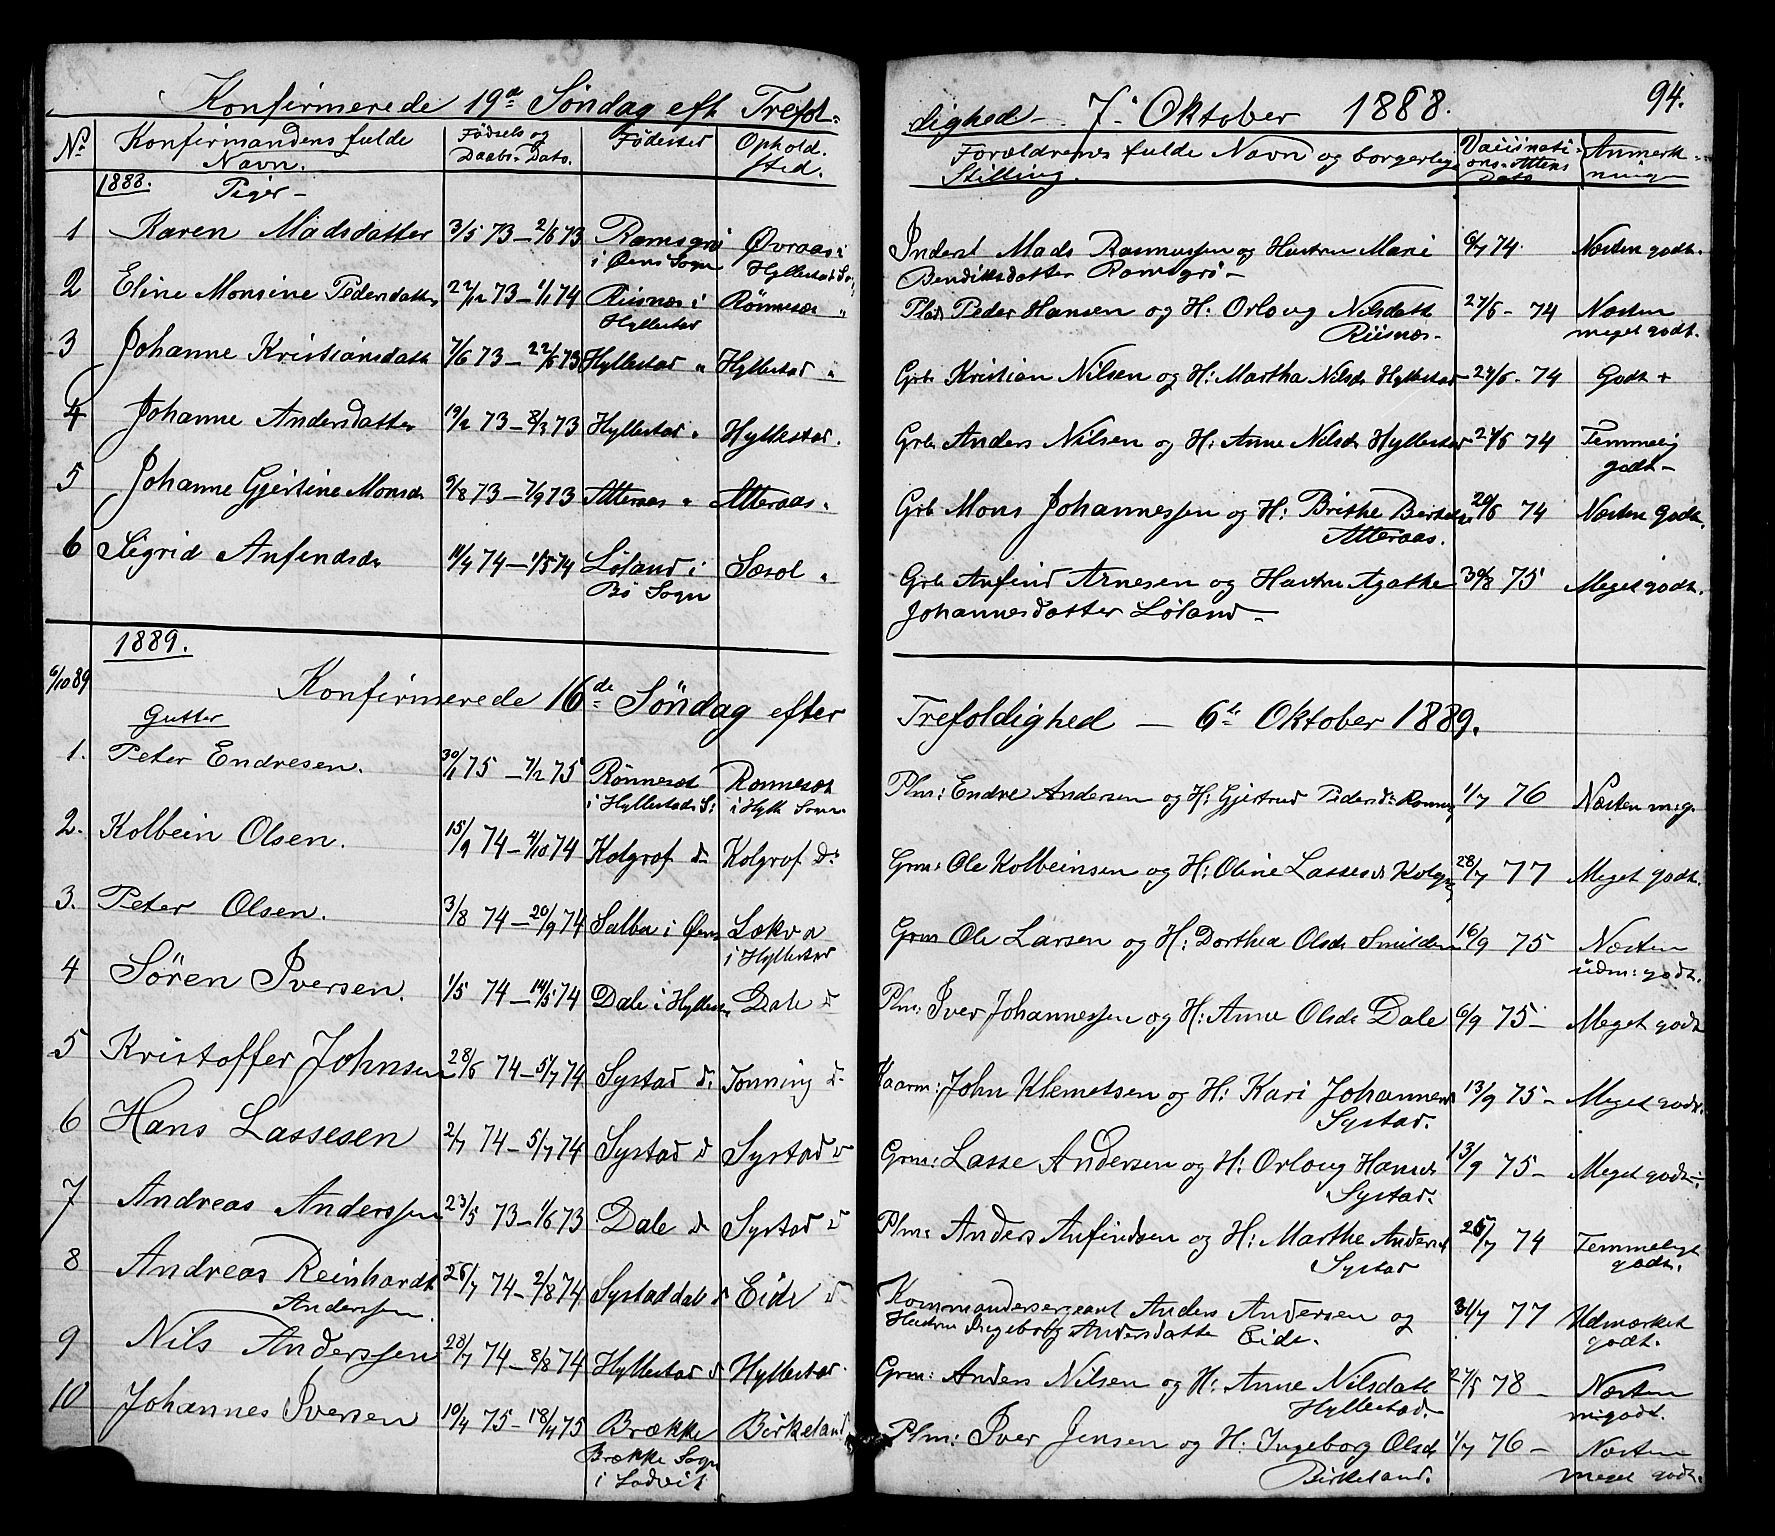 Konfirmerede 19de Søndag eft Trefol-
dighed - 7. Oktober 1888. 94.
No Konfirmandens fulde Navn. Fødsels og Daabs-Dato. Fødested Ophold. sted. Forældrenes fulde Navn og borgerlig Stilling. Vaccinations-Attens Dato Anmerkninger
1888. Piger -
1 Karen Madsdatter 3/5 73 - 2/6 73 Ramsgrø i Øens Sogn Øvraas i Hyllestad So: Inderst Mads Rasmussen og Hustru Mari 6/7 74. Næsten godt.
Bendiksdatter Ramsgrø -
2 Eline Monsine Pedersdatter 27/12 73 - 1/1 74 Risnes i Hyllestad Rønneset " Plds Peder Hansen og H: Orloug Nilsdatt 27/6 - 74 Næsten
Riisnes - meget godt.
3 Johanne Kristiansdatt 7/6 73 - 22/6 73 Hyllestad " Hyllestad " Grb Kristian Nilsen og H: Martha Nilsd: Hyllestad 24/6 - 74 Godt +
4 Johanne Andersdatter 19/2 73 - 8/3 73 Hyllestad " Hyllestad. Grb Anders Nilsen og H: Anne Nilsdr Hyllestad 24/6 74 Temmelig
godt -
5 Johanne Gjertine Monsdr 9/8 73 - 7/9 73 Atteraas " Atteraas " Grb Mons Johannessen og H: Brithe Bertsdr 20/6 74 Næsten Godt.
Atteraas.
6 Sigrid Anfindsdr 11/4 74 - 1/5 74 Løland i Bø Sogn Sæsol " Grb Anfind Arnesen og Hustru Agathe 30/8 75 Meget godt.
Johannesdatter Løland -
1889.
6/10 89 Konfirmerede 16de Søndag efter Trefoldighed - 6te Oktober 1889.
Gutter
1. Peter Endresen. 30/1 75 - 7/2 75 Rønneset i Hyllestad S: Rønneset i Hyll Sogn Plm: Endre Andersen og H: Gjertrud Pedersd: 1/7 76 Næsten m: g.
2. Kolbein Olsen. 15/9 74 - 4/10 74 Kolgrof do Kolgrof do Grm: Ole Kolbeinsen og H: Oline Lassesdr Kolgr 28/7 77 Meget godt.
3. Peter Olsen. 3/8 74 - 20/9 74 Salbu i Øens Lækva i Hyllestad Grm Ole Larsen og H: Dorthea Olsdr 16/9 75 Næsten
udm: godt.
4 Søren Iversen. 1/5 74 - 14/5 74 Dale i Hyllest Dale d Plm: Iver Johannessen og H: Anne Olsdr Dale 6/9 75 - Meget godt
5 Kristoffer Johnsen 28/6 74 - 5/7 74 Systad d: Tonning d: Kaarm: John Klemetsen og H: Kari Johannesdr 13/9 75 - Meget godt.
Systad.
6 Hans Lassesen 2/7 74 - 5/7 74 Systad d Systad d Grm: Lasse Andersen og H: Orloug Hansdr 13/9 75 - Meget godt -
Systad.
7 Andreas Anderssen 23/5 73 - 1/6 73 Dale d Systad d Plm: Anders Anfindsen og H: Marthe Andersd 25/7 74 Temmeligt
Systad godt.
8 Andreas Reinhardt 26/7 74 - 2/8 74 Systaddal d Eide d Kommandersergeant Anders Andersen og 31/7 77 Udmærket
Anderssen. Hustru Ingeborg Andersdatter Eide. godt.
9 Nils Anderssen 28/7 74 - 8/8 74 Hyllestad d Hyllestad. Grm: Anders Nilsen og H: Anne Nilsdatt 27/8 78 - Næsten
Hyllestad. m: godt.
10 Johannes Iversen 10/4 75 - 18/4 75 Brække Birkeland Plm: Iver Jensen og H: Ingeborg Olsdr 1/7 76 - Næsten
Brække Sogn i Ladvik Birkeland. meget godt.